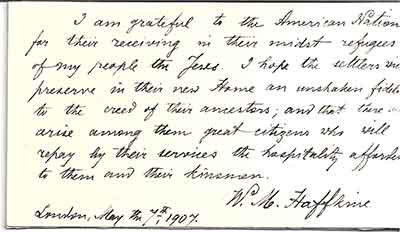 I am grateful to the American Nation
for their receiving in their midst refugees
of my people the Jews. I hope the settlers
preserve in their new Home an unshaken
to the creed of their ancestors; and that there
arise among them great citizens who will
repay by their services the hospitality
to them and their kinsmen.
W. M. Haffkine
London, May the 7th, 1907.